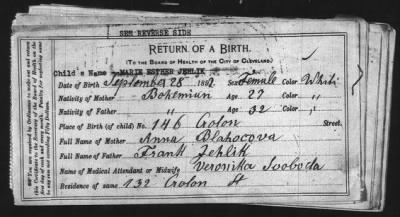 SEE REVERSE SIDE
RETURN OF A BIRTH.
(TO THE BOARD OF HEALTH OF THE CITY OF CLEVELAND.)
Child's Name MARIE ESTHER JEHLIK
Date of Birth September 28 1892 Sex Female Color White
Nativity of Mother Bohemian Age 27 Color "
Nativity of Father " Age 32 Color "
Place of Birth (of child) No. 146 Croton Street.
Full Name of Mother Anna Blahocova
Full Name of Father Frank Jehlik
Name of Medical Attendant or Midwife Veronika Svoboda
Residence of same 132 Croton St